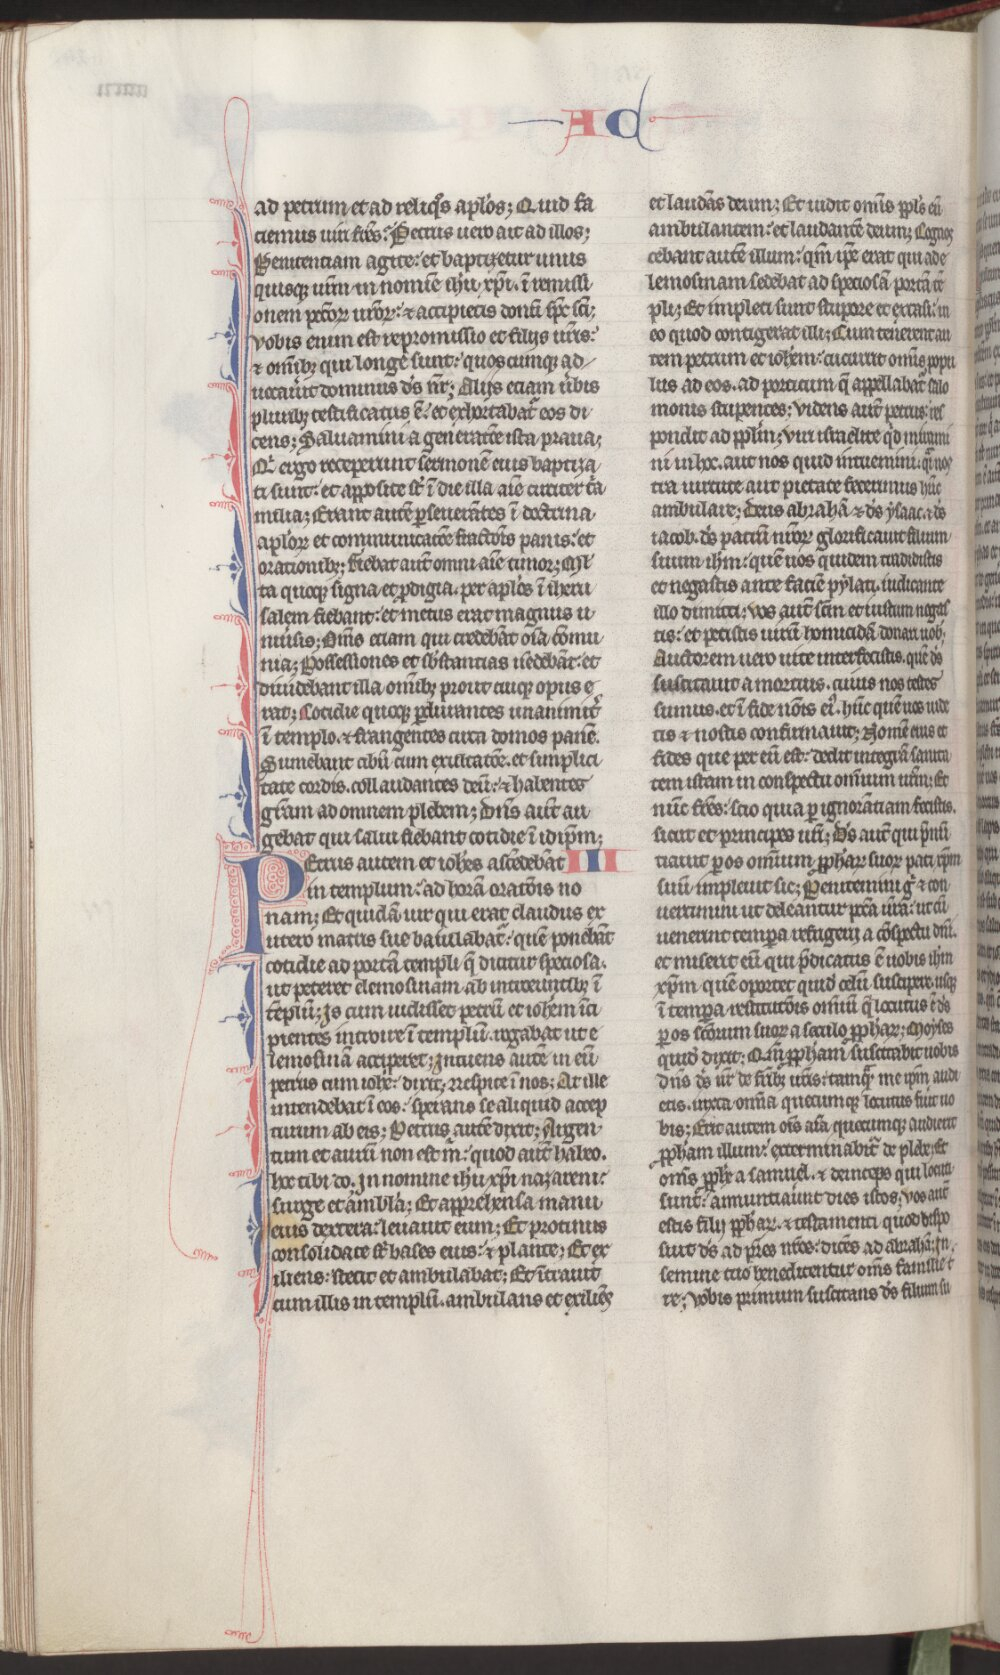 AC
ad petrum et ad reliq̄s aplōs; Quid fa
ciemus uiri fr̄es? Petrus uero ait ad illos;
Penitentiam agite: et baptizetur unus
quisq; ur̄m in nomīe ihū xp̄i. ī remissi
onem pccōꝝ ur̄oꝝ: ⁊ accipietis donū spc̄ scī;
vobis enim est repromissio et filijs ur̄is:
⁊ omībꝫ qui longe sunt: quoscumq; ad/
uocau̅it dominus ds̄ nr̄; Alijs eciam ūbis
pluribꝫ testificatus ē: et exhortabat᷑ eos di
cens; Saluamini a generatōe ista praua;
Qi ergo receperunt sermonē eius baptiza
ti sunt: et apposite st̄ ī die illa aīe circiter t̄a
milia; Erant autē ꝑseuerātes ī doctrina
aplōꝝ et communicatōe fractōis panis: et
orationibꝫ; fiebat aut̄ omni aīe timor; Ml̄
ta quoq; signa et ꝓdigia. per aplōs ī iheru
salem fiebant: et metus erat magnus ī u
niūsis; Om̄s eciam qui credebāt oīa cōmu
nia; Possessiones et sb̄stantias uēdebāt: et
diuidebant illa omībꝫ prout cuiq; opus e
rat; Cotidie quoq; ꝑdurantes unanimit̄
ī templo. ⁊ frangentes circa domos panē.
Sumebant cibū cum exultatōe. et simplici
tate cordis. collaudantes deū: ⁊ habentes
gr̄am ad omnem plebem; Dn̄s aut̄ au
gebat qui salui fiebant cotidie ī idip̄m;
Petrus autem et ioh̄es ascēdebāt III
in templum: ad horā oratōis no
nam; Et quidā uir qui erat claudus ex
utero matris sue baiulabat᷑: quē ponebāt
cotidie ad portā templi q̄ dicitur speciosa.
ut peteret elemosinam ab introeuntibꝫ ī
tēplū; Is cum uidisset petrū et ioh̄em īci
pientes introire ī templū. rogabat ut e
lemosinā acciperet; Intuens autē in eū
petrus cum ioh̄e: dixit; Respice ī nos; At ille
intendebat ī eos: sperans se aliquid accep
turum ab eis; Petrus autē dixit; Argen
tum et aurū non est m̄: quod aut̄ habeo.
hoc tibi do. In nomine ihū xp̄i nazareni:
surge et ambla; Et apprehensa manu
eius dextera: leuauit eum; Et protinus
consolidate st̄ bases eius: ⁊ plante; Et ex
iliens: stetit et ambulabat; Et ītrauit
cum illis in templū. ambulans et exiliēs
et laudās deum; Et uidit omīs ppl̄s eū
ambulantem: et laudantē deum; Cognos
cebant autē illum: qm̄ ip̄e erat qui ad e
lemosinam sedebat ad speciosā portā tē
pli; Et impleti sunt stupore et extasi: in
eo quod contigerat illi; Cum tenerent au
tem petrum et ioh̄em: cucurrit omīs popu
lus ad eos. ad porticum q̄ appellabat᷑ salo
monis stupentes; Videns aut̄ petrus: res
pondit ad ppl̄m; Viri israelite qd̄ mirami
ni in hoc. aut nos quid intuemini: q̄i nos
tra uirtute aut pietate fecerimus hūc
ambulare; Deus abrahā ⁊ ds̄ ysaac. ⁊ ds̄
iacob. ds̄ patrū nr̄oꝝ glorificauit filium
suum ihm̄: quē uos quidem tradidistis
et negastis ante faciē pylati. iudicante
illo dimitti; Vos aut̄ sc̄m et iustum negas
tis: et petistis uirū homicidā donari uob̄.
Auctorem uero uite interfecistis. quē ds̄
suscitauit a mortuis. cuius nos testes
sumus. et ī fide nōis ei᷒. hūc quē uos uide
tis ⁊ nostis confirmauit; Nomē eius et
fides que per eū est: dedit integrā sanita
tem istam in conspectu omnium ur̄m; Et
nūc fr̄es: scio quia ꝑ ignorātiam fecistis.
sicut et principes ur̄i; Ds̄ aut̄ qui p̄nūti
tiauit ꝑ os omnium ꝓphāꝝ suoꝝ pati xp̄m
suū impleuit sic; Penitemini g̅ ⁊ con
uertimini ut deleantur pctā ur̄a: ut cū
uenerint tempora refrigerij a cōspectu dnī.
et miserit eū qui p̄dicatus ē uobis ihm̄
xp̄m. quē oportet quid celū suscipere. usq;
ī tempora restitutōis omniū q̄ locutus ē ds̄
ꝑ os sc̄orum suoꝝ a seculo ꝓphāꝝ; Moyses
quid dixit; Qm̄ ꝓpham suscitabit uobis
dn̄s ds̄ ur̄ de fr̄ibꝫ ur̄is: tamq̄ me ip̄m audi
etis. iuxta om̄ia quecumq; locutus fūit uo
bis; Erit autem oīs aīa quecumq; audierit
ꝓpham illum: exterminabit᷑ de plebe; Et
omīs ꝓphe a samuel. ⁊ deinceps qui locuti
sunt: annuntiauūt dies istos; Vos aut̄
estis filij ꝓphaꝝ. ⁊ testamenti quod dispo
suit ds̄ ad pr̄es nr̄os: dicēs ad abrahā; In
semine tuo benedicentur omīs familie t̄
re; Vobis primum suscitans ds̄ filium su